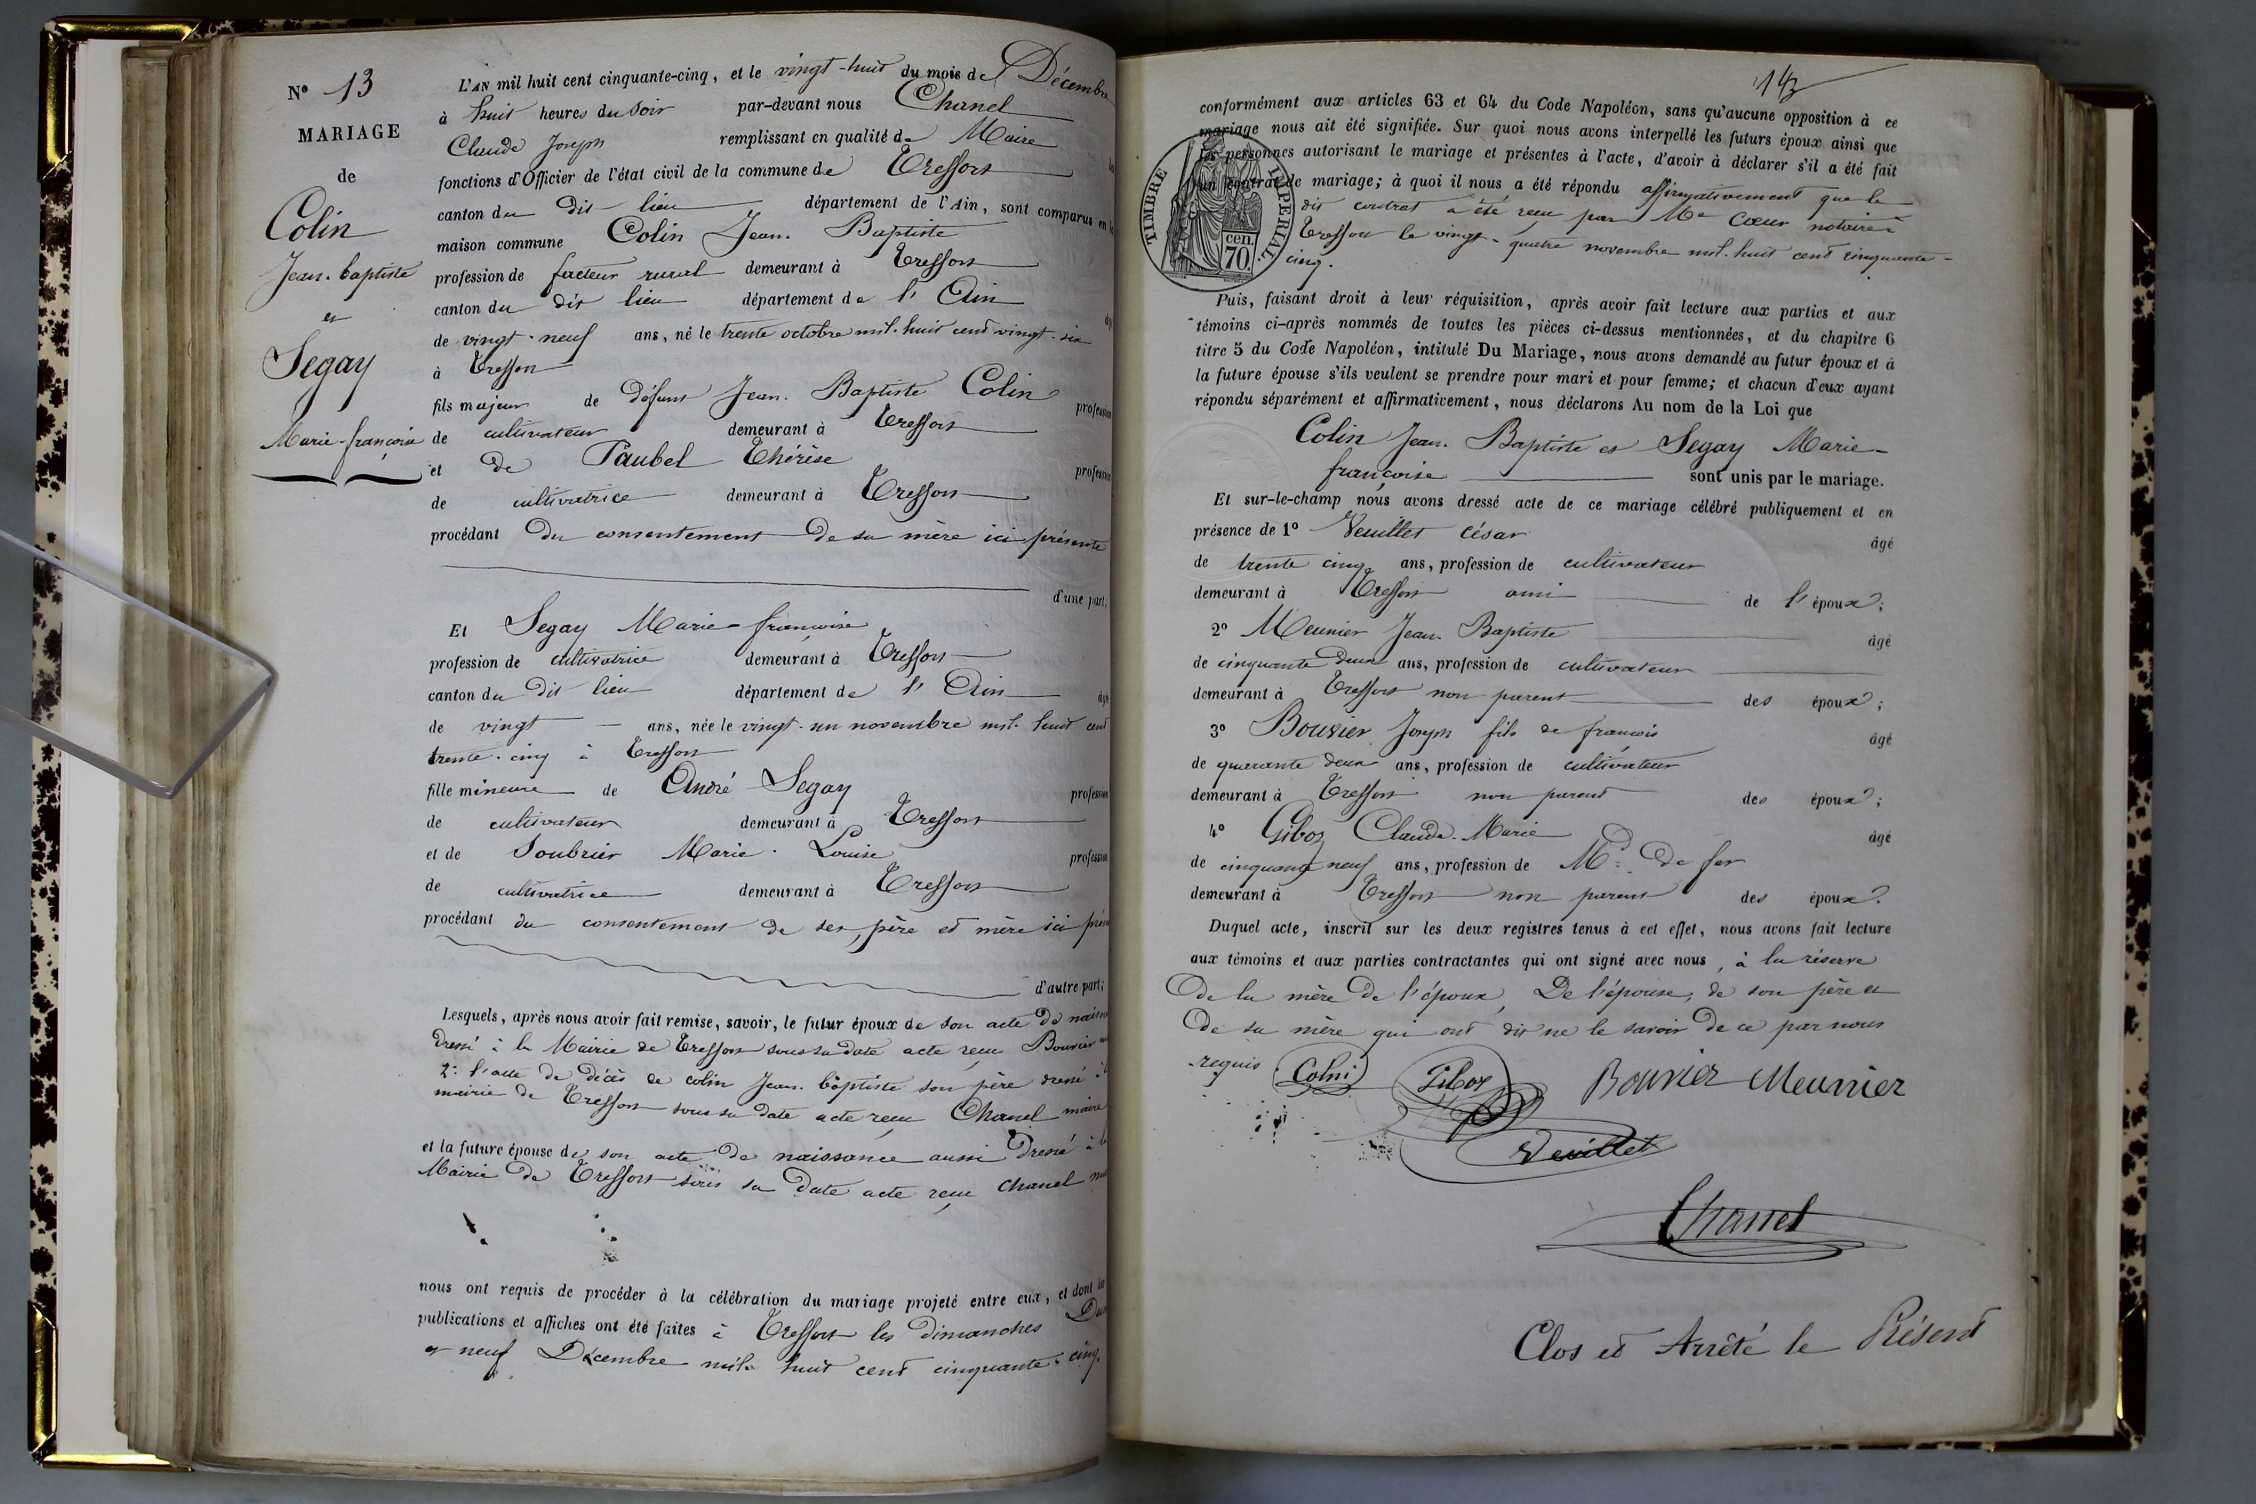 N° 13
MARIAGE
de
Colin
Jean-baptiste
et
Segay
Marie-françoise
L'AN mil huit cent cinquante-cinq, et le vingt-huit du mois de Décembre
à huit heures du soir par-devant nous Chanel
Claude Joseph remplissant en qualité de Maire
fonctions d'Officier de l'état civil de la commune de Treffort
canton du dit lieu département de l'Ain, sont comparus en la
maison commune Colin Jean-Baptiste
profession de facteur rural demeurant à Treffort
canton du dit lieu département de l'Ain
de vingt-neuf ans, né le trente octobre mil-huit cent vingt-six
à Treffort
fils majeur de défunt Jean-Baptiste Colin profession
de cultivateur demeurant à Treffort
et de Paubel Thérèse profession
de cultivatrice demeurant à Treffort
procédant du consentement de sa mère ici présente
d'une part;
Et Segay Marie-françoise
profession de cultivatrice demeurant à Treffort
canton du dit lieu département de l'Ain âgé
de vingt ans, née le vingt-un novembre mil-huit cent
trente-cinq à Treffort
fille mineure de André Segay profession
de cultivateur demeurant à Treffort
et de Soubrier Marie-Louise profession
de cultivatrice demeurant à Treffort
procédant du consentement de ses père et mère ici
d'autre part;
Lesquels, après nous avoir fait remise, savoir, le futur époux de son acte de
dressé à la Mairie de Treffort sous sa date acte reçu Bouvier
2° l'acte de décès de colin Jean-baptiste son père dressé à
mairie de Treffort sous sa date acte reçu Chanel maire
et la future épouse de son acte de naissance aussi dressé à la
Mairie de Treffort sous sa date acte reçu Chanel
nous ont requis de procéder à la célébration du mariage projeté entre eux, et dont les
publications et affiches ont été faites à Treffort les dimanches Deux
et neuf Décembre mil-huit cent cinquante-cinq.
143
conformément aux articles 63 et 64 du Code Napoléon, sans qu'aucune opposition à ce
mariage nous ait été signifiée. Sur quoi nous avons interpellé les futurs époux ainsi que
les personnes autorisant le mariage et présentes à l'acte, d'avoir à déclarer s'il a été fait
un contrat de mariage; à quoi il nous a été répondu affirmativement que le
dit contrat a été reçu par Me Cœur notaire à
Treffort le vingt-quatre novembre mil-huit cent cinquante-
cinq.
TIMBRE IMPERIAL.
70 cen.
Puis, faisant droit à leur réquisition, après avoir fait lecture aux parties et aux
témoins ci-après nommés de toutes les pièces ci-dessus mentionnées, et du chapitre 6
titre 5 du Code Napoléon, intitulé Du Mariage, nous avons demandé au futur époux et à
la future épouse s'ils veulent se prendre pour mari et pour femme; et chacun d'eux ayant
répondu séparément et affirmativement, nous déclarons Au nom de la Loi que
Colin Jean-Baptiste et Segay Marie-
françoise sont unis par le mariage.
Et sur-le-champ nous avons dressé acte de ce mariage célébré publiquement et en
présence de 1° Veuillet César âgé
de trente cinq ans, profession de cultivateur
demeurant à Treffort ami de l'époux;
2° Meunier Jean-Baptiste âgé
de cinquante deux ans, profession de cultivateur
demeurant à Treffort non parent des époux;
3° Bouvier Joseph fils de françois âgé
de quarante deux ans, profession de cultivateur
demeurant à Treffort non parent des époux;
4° Giboz Claude-Marie âgé
de cinquante neuf ans, profession de Md de fer
demeurant à Treffort non parent des époux.
Duquel acte, inscrit sur les deux registres tenus à cet effet, nous avons fait lecture
aux témoins et aux parties contractantes qui ont signé avec nous, à la réserve
de la mère de l'époux, De l'épouse, de son père et
de sa mère qui ont dit ne le savoir de ce par nous
requis.
Colin Giboz Bouvier Meunier
Veuillet
Chanel
Clos et Arrêté le Présent